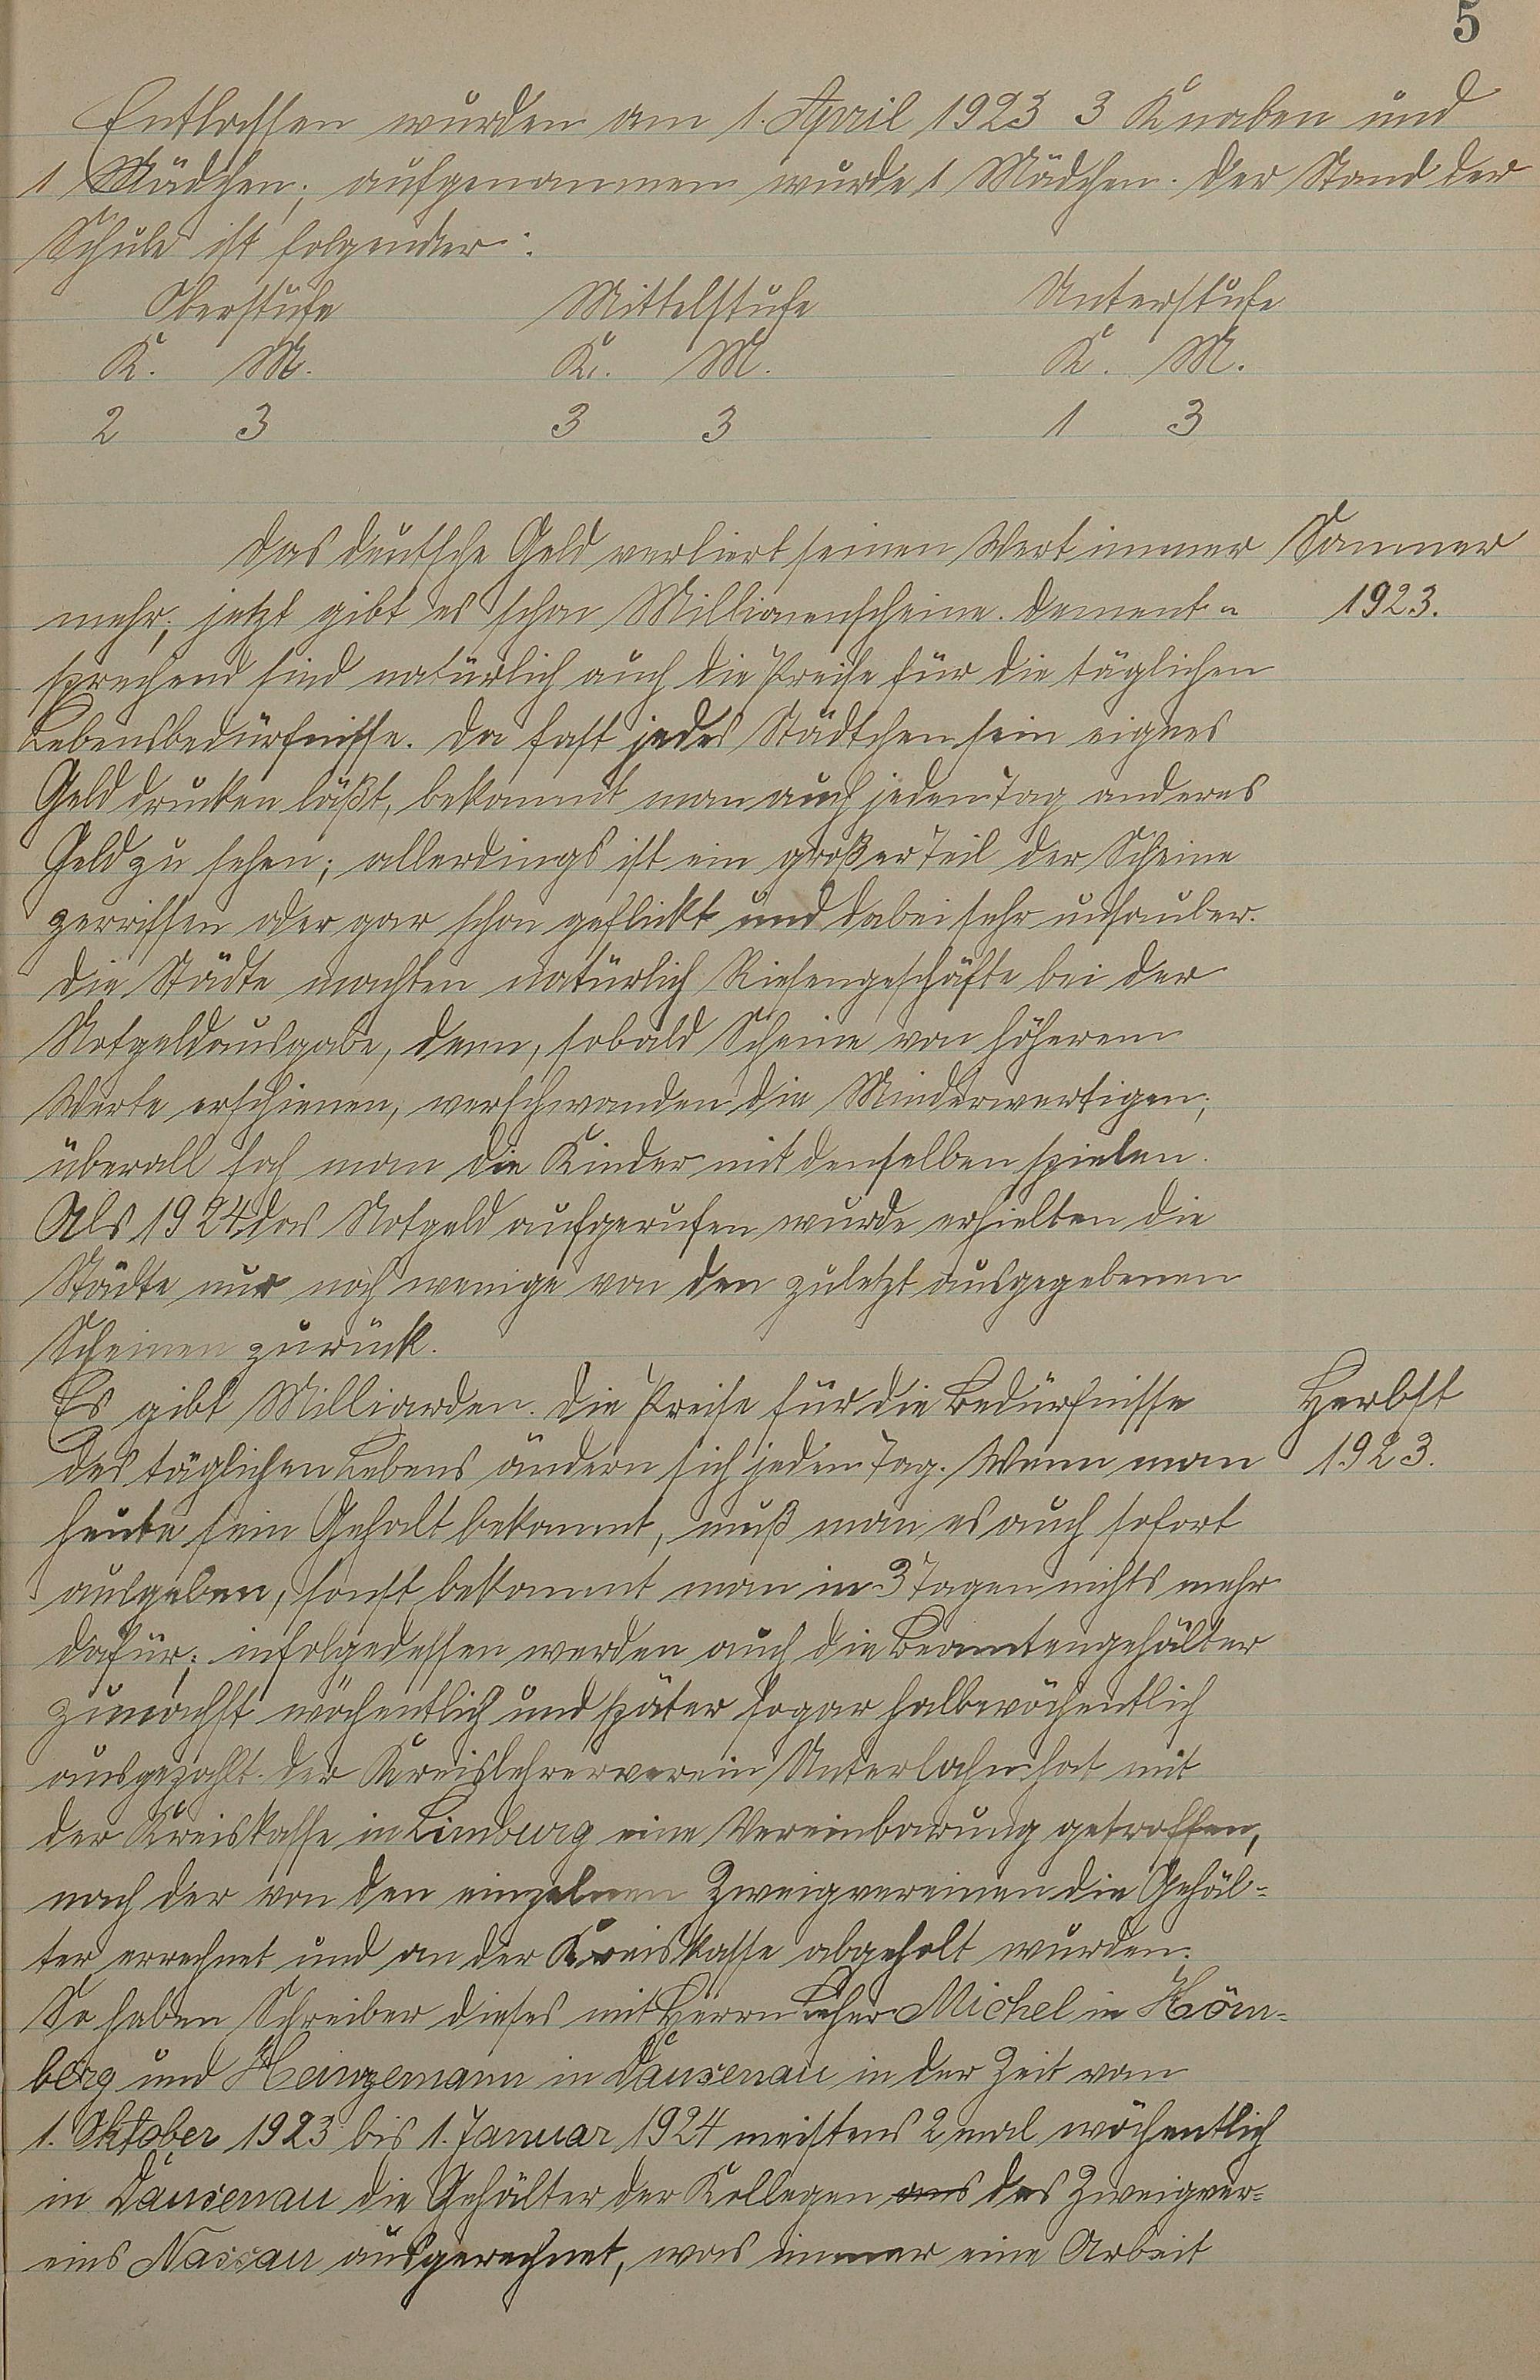 5
Entlassen wurden am 1. April 1923 3 Knaben und
1 Mädchen; aufgenommen wurde 1 Mädchen. Der Stand der
Schule ist folgender:
Oberstufe Mittelstufe Unterstufe
K. M. K. M. K. M.
2 3 3 3 1 3
Das deutsche Geld verliert seinen Wert immer Sommer
mehr; jetzt gibt es schon Millionenscheine. Dement- 1923.
sprechend sind natürlich auch die Preise für die täglichen
Lebensbedürfnisse. Da fast jedes Städtchen sein eignes
Geld drucken läßt, bekommt man auch jeden Tag anderes
Geld zu sehen; allerdings ist ein großer Teil der Scheine
zerrissen oder gar schon geflickt und dabei sehr unsauber.
Die Städte machten natürlich Riesengeschäfte bei der
Notgeldausgabe, denn, sobald Scheine von höherem
Werte erschienen, verschwanden die Minderwertigen;
überall sah man die Kinder mit denselben spielen.
Als 1924 das Notgeld aufgerufen wurde erhielten die
Städte nur noch wenige von den zuletzt ausgegebenen
Scheinen zurück.
Es gibt Milliarden. Die Preise für die Bedürfnisse Herbst
des täglichen Lebens ändern sich jeden Tag. Wenn man 1923.
heute sein Gehalt bekommt, muß man es auch sofort
ausgeben, sonst bekommt man in 3 Tagen nichts mehr
dafür; infolgedessen werden auch die Beamtengehälter
zunächst wöchentlich und später sogar halbwöchentlich
ausgezahlt. Der Kreislehrerverein Unterlahn hat mit
der Kreiskasse in Limburg eine Vereinbarung getroffen,
nach der von den einzelnen Zweigvereinen die Gehäl-
ter errechnet und an der Kreiskasse abgeholt wurden.
So haben Schreiber dieses mit Herrn Lehrer Michel in Hörn-
berg und Heinzemann in Dausenau in der Zeit vom
1. Oktober 1923 bis 1. Januar 1924 meistens 2 mal wöchentlich
in Dausenau die Gehälter der Kollegen aus des Zweigver-
eins Nassau ausgerechnet, was immer eine Arbeit